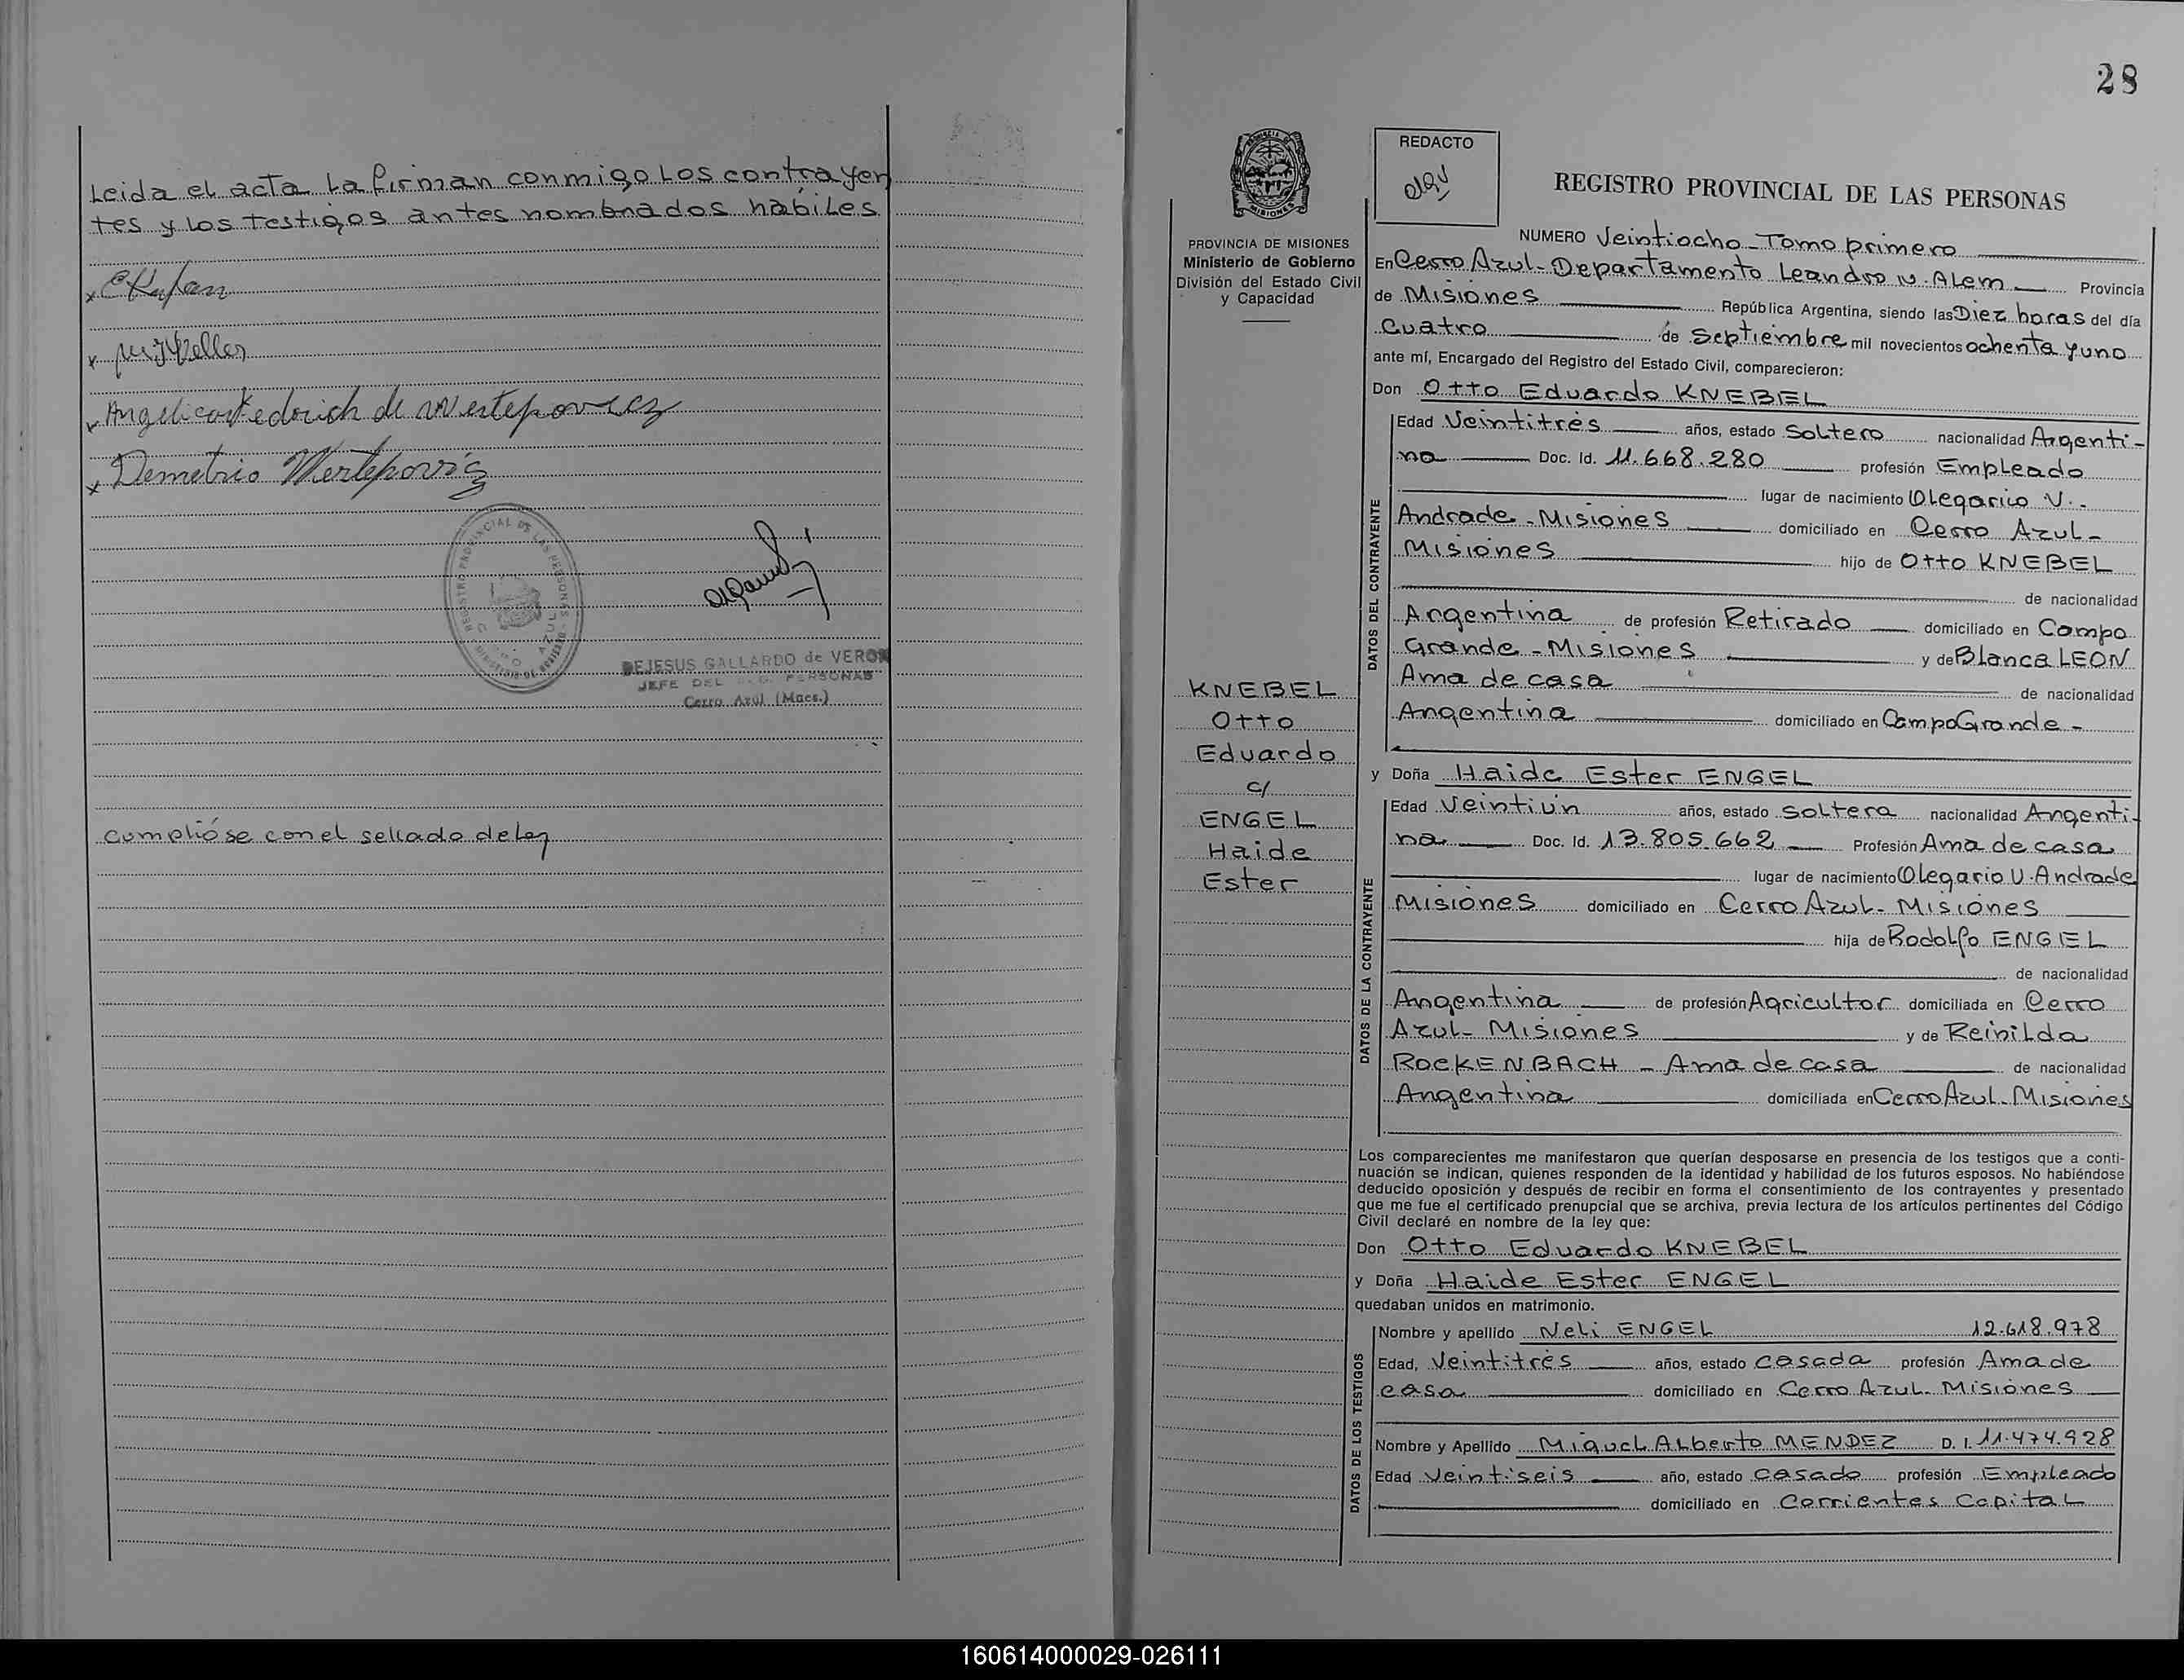 Leida el acta la firman conmigo los contrayen
tes y los testigos antes nombrados habiles
x
x
x Angelica de
x Demetrio Wertepovis
REGISTRO PROVINCIAL DE LAS PERSONAS
DEJESUS GALLARDO de VERON
JEFE DEL PERSONAS
Cerro Azul (Mnes.)
cumplióse con el sellado de ley
28
PROVINCIA DE MISIONES
Ministerio de Gobierno
División del Estado Civil
y Capacidad
KNEBEL
Otto
Eduardo
c/
ENGEL
Haide
Ester
REDACTO
REGISTRO PROVINCIAL DE LAS PERSONAS
NUMERO Veintiocho - Tomo primero
En Cerro Azul - Departamento Leandro N. Alem Provincia
de Misiones República Argentina, siendo las Diez horas del día
Cuatro de Septiembre mil novecientos ochenta y uno
ante mí, Encargado del Registro del Estado Civil, comparecieron:
Don Otto Eduardo KNEBEL
DATOS DEL CONTRAYENTE
Edad Veintitrés años, estado Soltero nacionalidad Argenti-
na Doc. Id. 11.668.280 profesión Empleado
lugar de nacimiento Olegario V.-
Andrade - Misiones domiciliado en Cerro Azul -
Misiones hijo de Otto KNEBEL
de nacionalidad
Argentina de profesión Retirado domiciliado en Campo
Grande - Misiones y de Blanca LEON
Ama de casa de nacionalidad
Argentina domiciliado en Campo Grande -
y Doña Haide Ester ENGEL
DATOS DE LA CONTRAYENTE
Edad Veintiún años, estado Soltera nacionalidad Argenti-
na Doc. Id. 13.805.662 Profesión Ama de casa
lugar de nacimiento Olegario V. Andrade
Misiones domiciliado en Cerro Azul - Misiones
hija de Rodolfo ENGEL
de nacionalidad
Argentina de profesión Agricultor domiciliada en Cerro
Azul - Misiones y de Reinilda
ROCKENBACH - Ama de casa de nacionalidad
Argentina domiciliada en Cerro Azul - Misiones
Los comparecientes me manifestaron que querían desposarse en presencia de los testigos que a conti-
nuación se indican, quienes responden de la identidad y habilidad de los futuros esposos. No habiéndose
deducido oposición y después de recibir en forma el consentimiento de los contrayentes y presentado
que me fue el certificado prenupcial que se archiva, previa lectura de los artículos pertinentes del Código
Civil declaré en nombre de la ley que:
Don Otto Eduardo KNEBEL
y Doña Haide Ester ENGEL
quedaban unidos en matrimonio.
DATOS DE LOS TESTIGOS
Nombre y apellido Neli ENGEL 12.618.978
Edad, Veintitrés años, estado casada profesión Ama de
casa domiciliado en Cerro Azul - Misiones
Nombre y Apellido Miguel Alberto MENDEZ D. I. 11.474.928
Edad Veintiseis año, estado casado profesión Empleado
domiciliado en Corrientes Capital
160614000029-026111